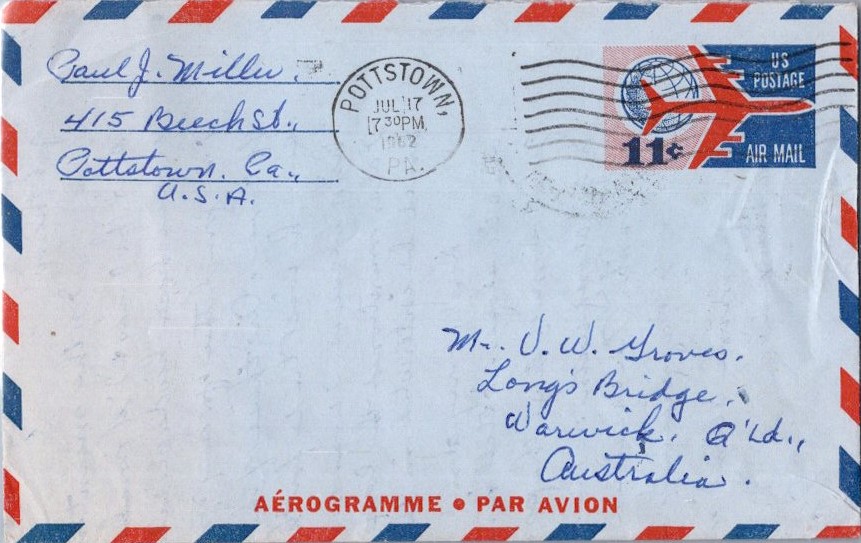 Paul J. Miller.
415 Beech St.,
Pottstown. Pa.,
U.S.A.
POTTSTOWN,
JUL 17
730PM
1962
PA.
US
POSTAGE
11¢
AIR MAIL
Mr. V. W. Groves.
Long's Bridge,
Warwick, Q'Ld.,
Australia.
AÉROGRAMME • PAR AVION